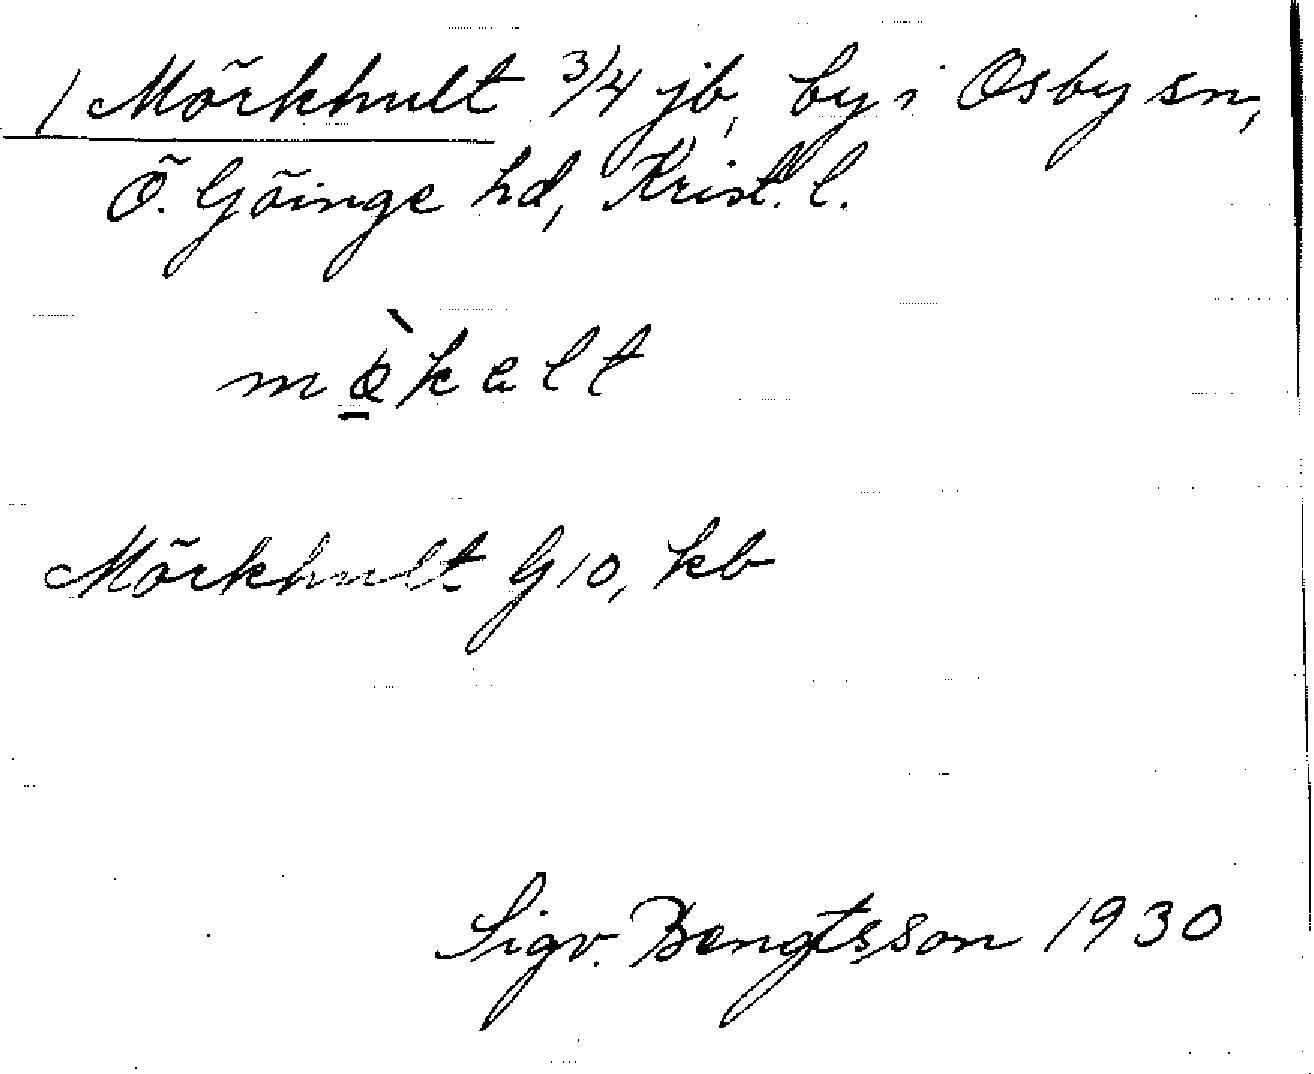 / Mörkhult 3/4 jb, by i Osby sn,
Ö. Göinge hd, Krist. l.
mø̱̀kalt
Mörkhult G10, kb
Sigv. Bengtsson 1930